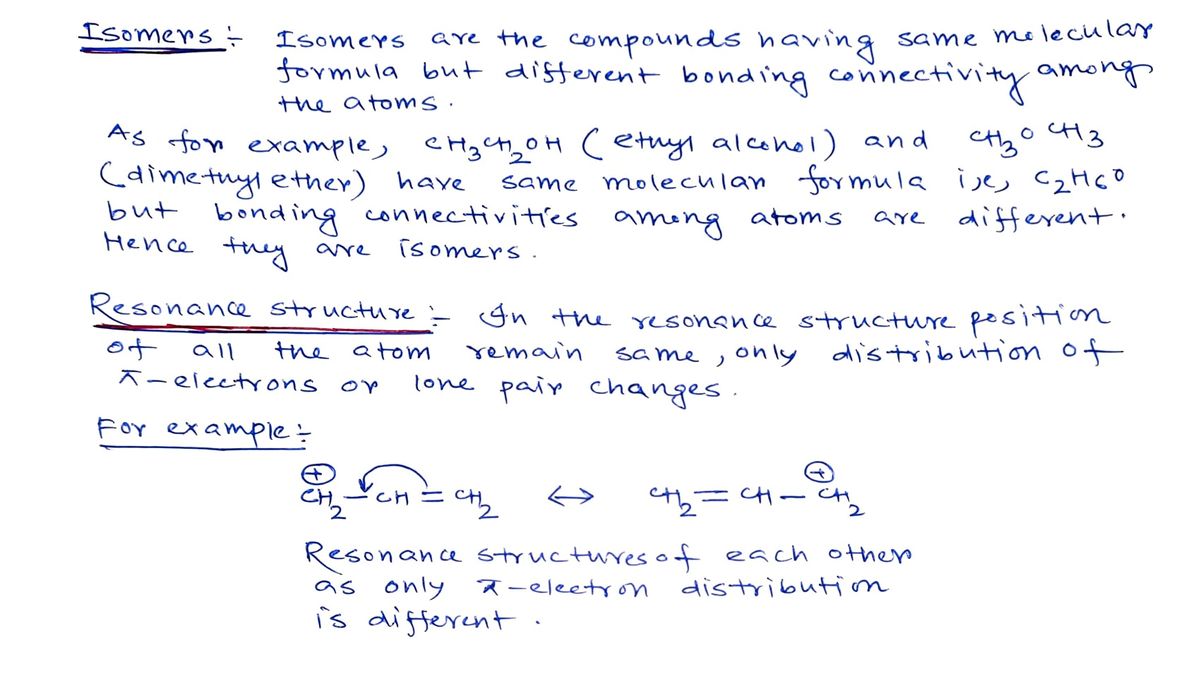 Isomers :- Isomers are the compounds having same molecular
formula but different bonding connectivity among
the atoms.
As for example, CH₃CH₂OH (ethyl alcohol) and CH₃OCH₃
(dimethyl ether) have same molecular formula i,e, C₂H₆O
but bonding connectivities among atoms are different.
Hence they are isomers.
Resonance structure :- In the resonance structure position
of all the atom remain same, only distribution of
π-electrons or lone pair changes.
For example :-
⊕ ⊕
CH₂-CH=CH₂ ↔ CH₂=CH-CH₂
Resonance structures of each other
as only π-electron distribution
is different.